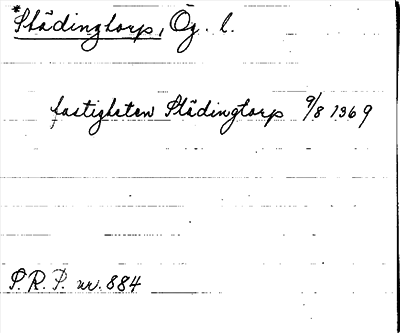 *Städingtorp, Ög. l.
fastigheten Städingtorp 9/8 1369
S.R.P. nr. 884